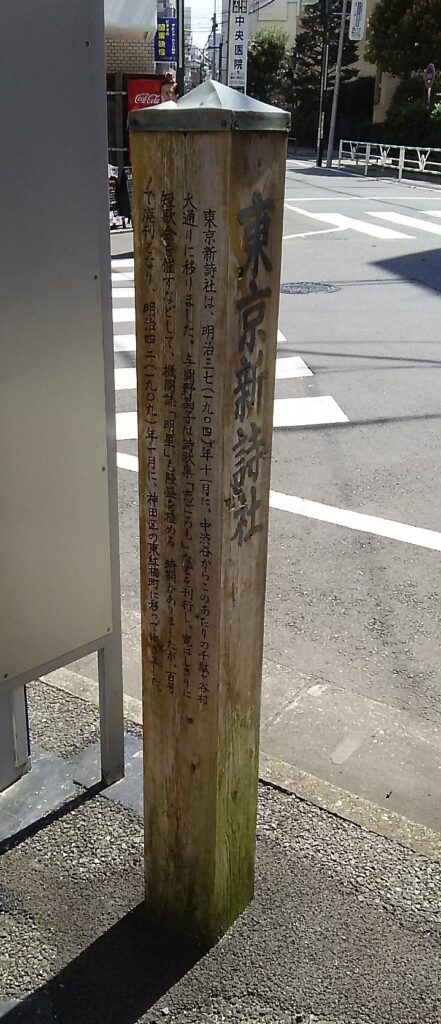 東京新詩社
東京新詩社は、明治三七(一九〇四)年十一月に、中渋谷からこのあたりの千駄ヶ谷村
大通りに移りました。与謝野晶子は詩歌集「恋ごろも」などを刊行し、寛はしきりに
短歌会を催すなどして、機関誌「明星」も隆盛を極める時期がありましたが、百号
で廃刊となり、明治四二(一九〇九)年一月に、神田区の東紅梅町に移って行きました。
中央医院
関東映像
Coca-Cola